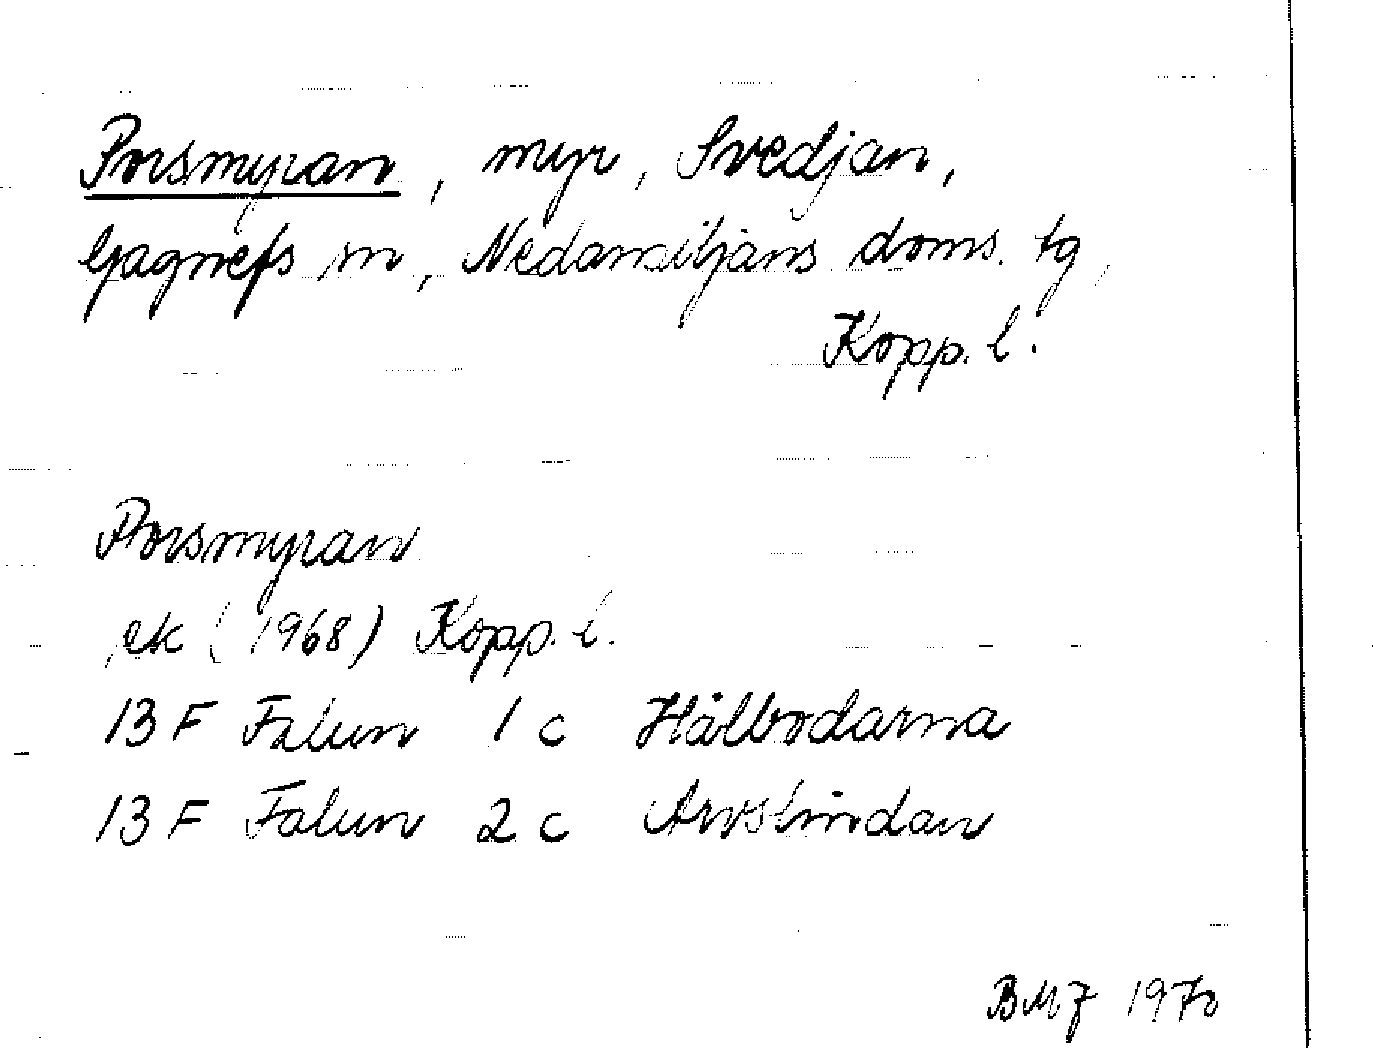 Porsmyran, myr, Svedjan,
Gagnefs sn, Nedansiljans doms. tg,
Kopp. l.
Porsmyran
ek (1968) Kopp. l.
13 F Falun 1 c Hålbodarna
13 F Falun 2 c Arvslindan
BMJ 1970